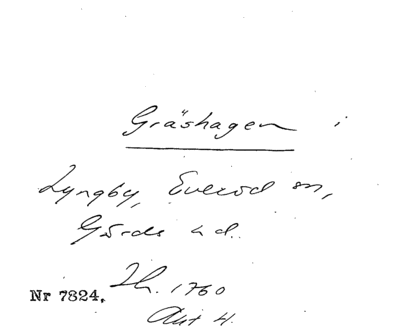 Gräshagen i
Lyngby, Everöd sn,
Gärds hd.
Lh. 1760
Akt 4.
Nr 7824.